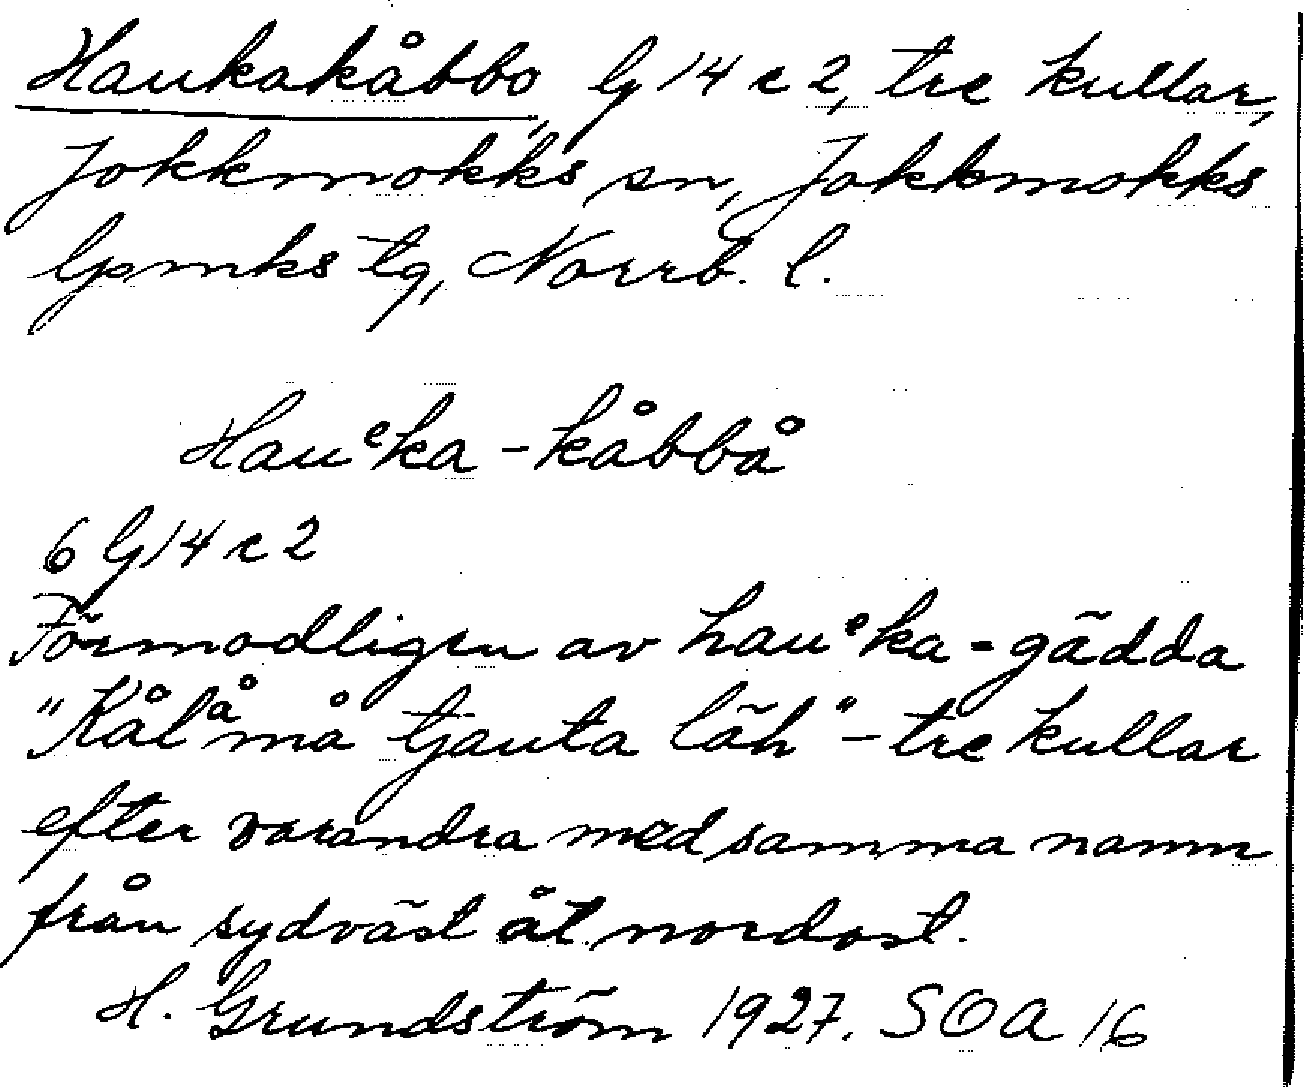 Haukakåbbo, G 14 c 2, tre kullar,
Jokkmokks sn, Jokkmokks
lpmks tg, Norrb. l.
Hauᵉka-kåbbå
6 G 14 c 2
Förmodligen av hauᵉka = gädda
"Kålåmå tjauta läh" - tre kullar
efter varandra med samma namn
från sydväst åt nordost.
H. Grundström 1927. SOA 16